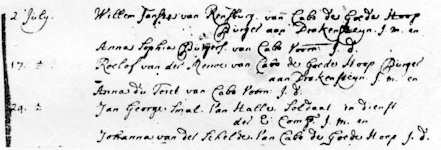 2 July. Willem Jansz van Rensburg. van Cabo de Goede Hoop
Burger aan Drakensteyn. J. m. en
Anna Sophia Burgers van Cabo voorn. J. d.
17. d. Roelof van der Merwe van Cabo de Goede Hoop Burger
aan Drakensteyn. J. m. en
Anna du Toict van Cabo Voorn. J. d.
24. d. Jan George Smal. Van Halle. Soldaat in dienst
der E: Comp. J. m. en
Johanna van der Schelde. Van Cabo de Goede Hoop. J. d.